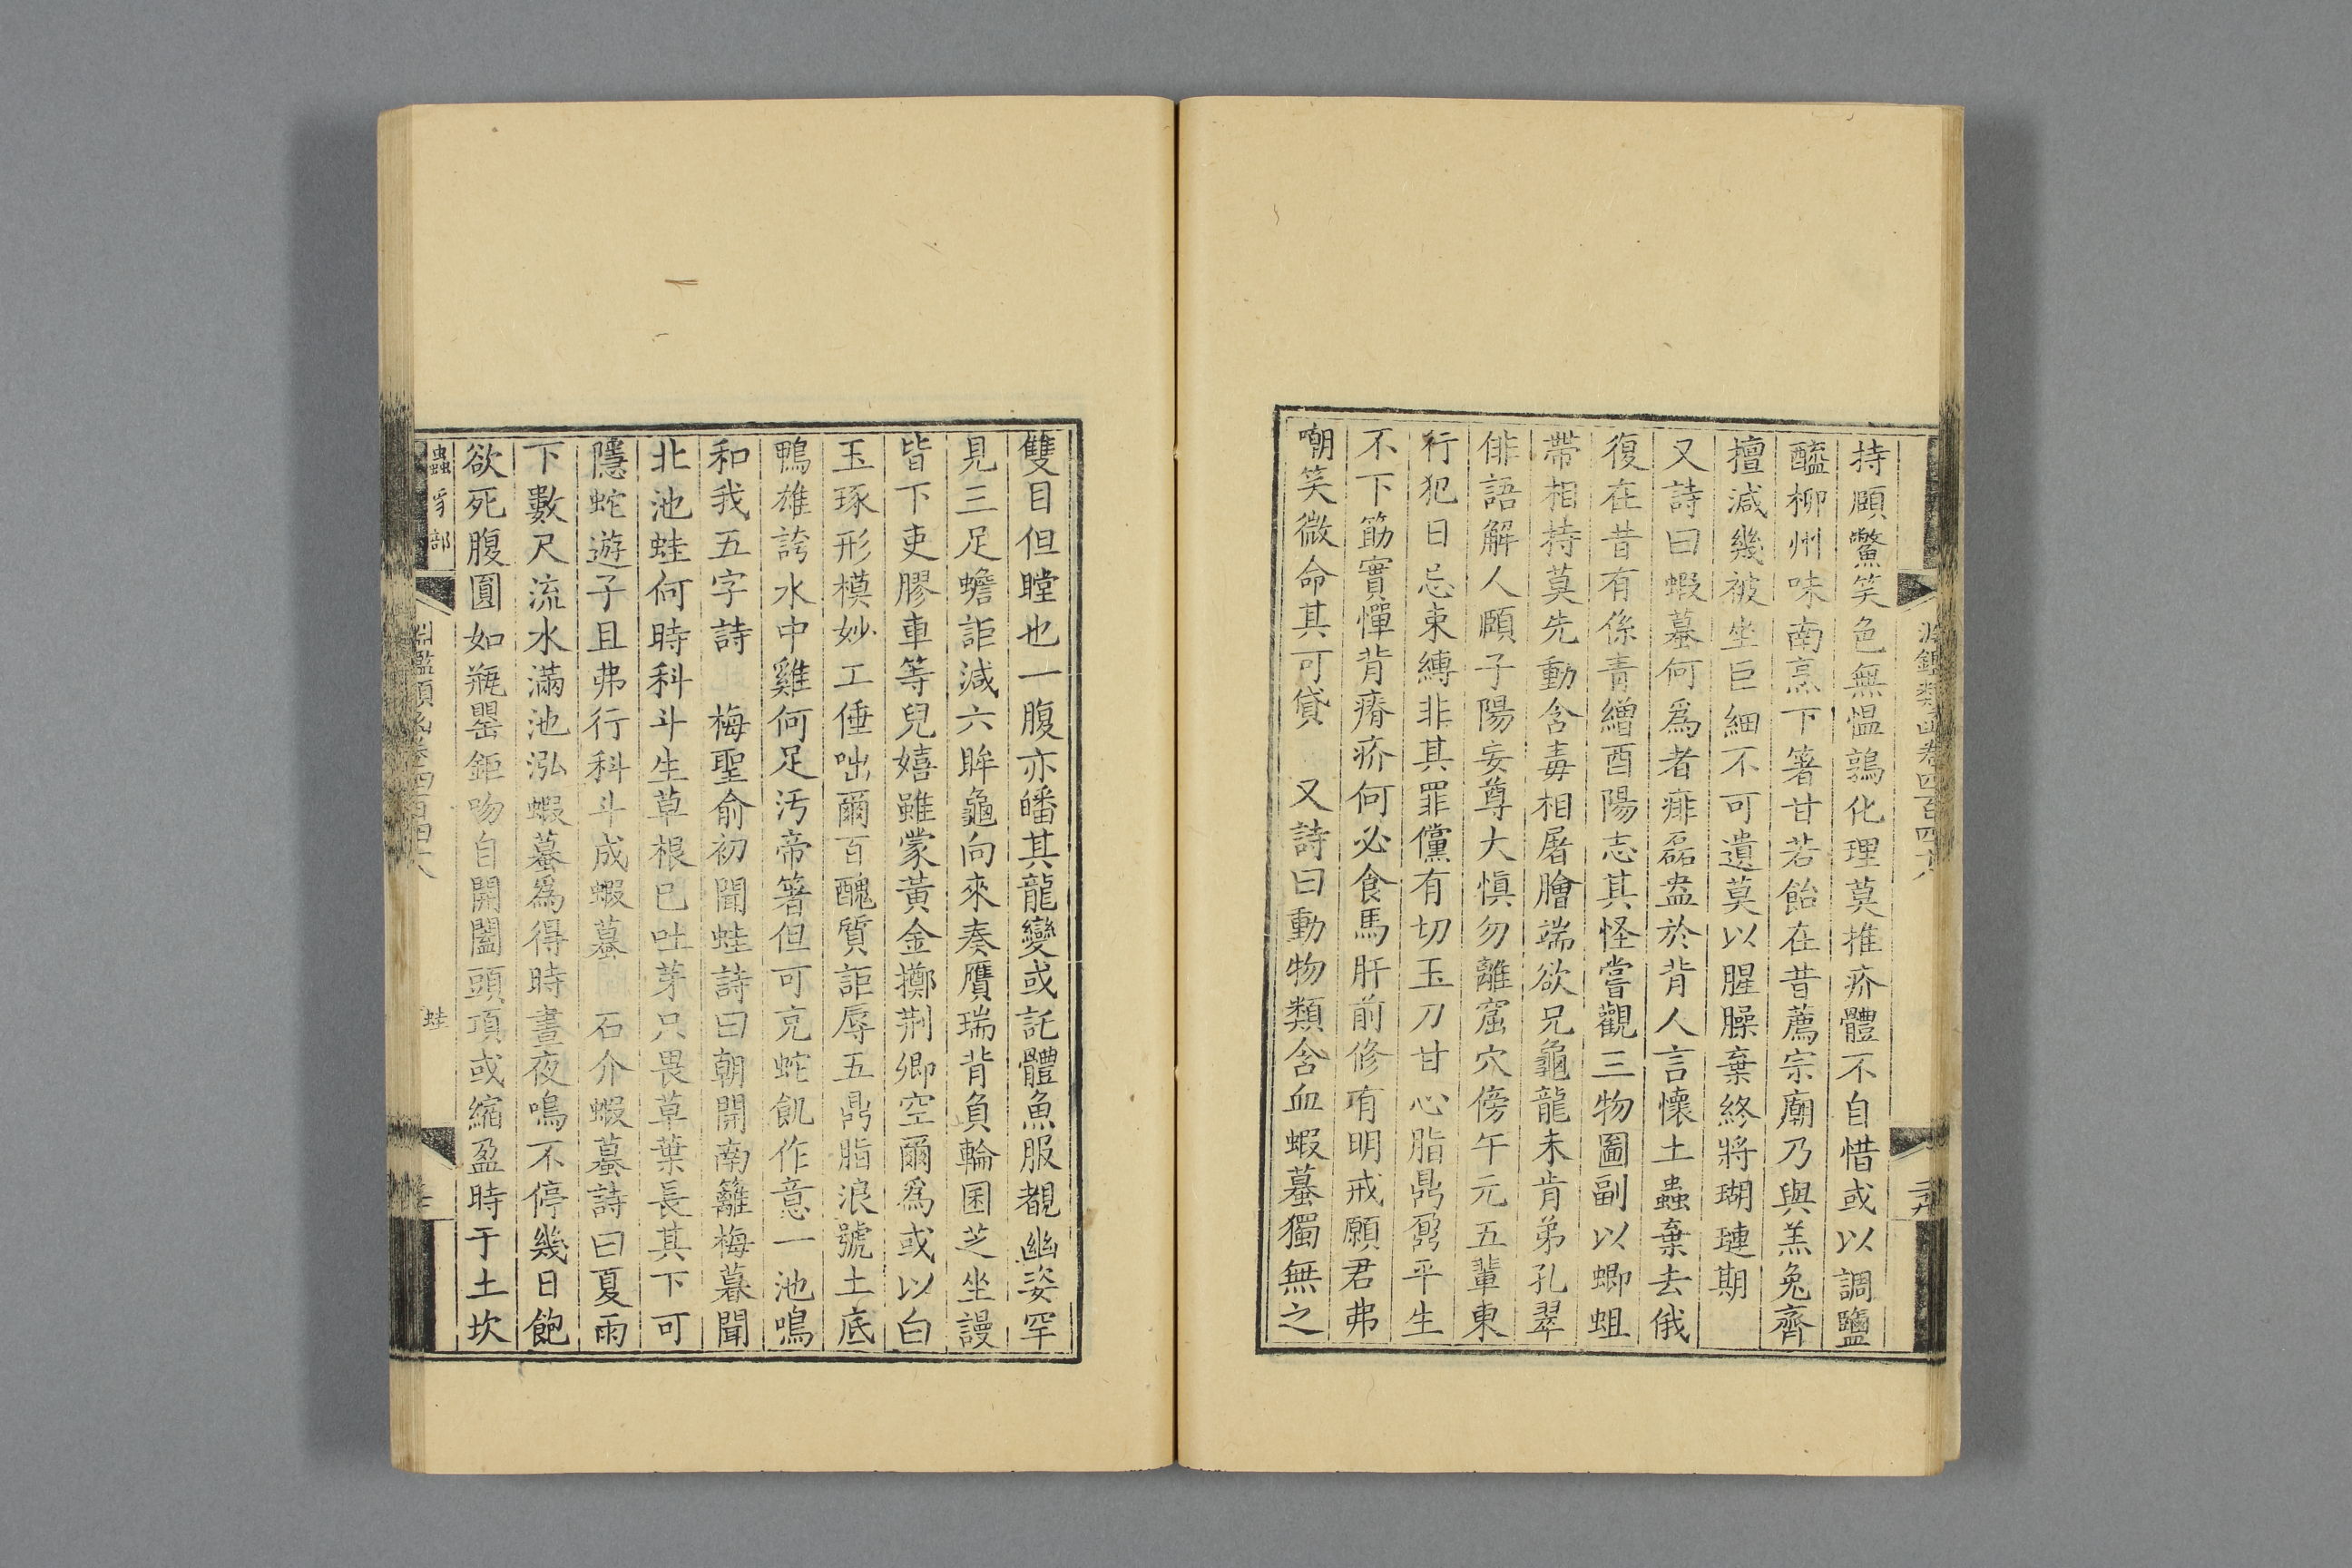 淵鑑類函卷四百四十八
持頤鱉笑色無慍鶉化理莫推疥體不自惜或以調鹽
醯柳州味南烹下箸甘若飴在昔薦宗廟乃與羔兔齊
擅減幾被坐巨細不可遺莫以腥臊棄終將瑚璉期
又詩曰蝦蟇何爲者痱磊盎於背人言懷土蟲棄去俄
復在昔有係青繒酉陽志其怪嘗觀三物圖副以蝍蛆
帶相持莫先動含毒相屠膾端欲兄龜龍未肯弟孔翠
俳語解人頤子陽妄尊大愼勿離窟穴傍午元五輩東
行犯日忌束縛非其罪儻有切玉刀甘心脂鼎鼐平生
不下筯實憚背瘠疥何必食馬肝前修有明戒願君弗
嘲笑微命其可貸 又詩曰動物類含血蝦蟇獨無之
雙目但瞠也一腹亦皤其龍變或託體魚服覩幽姿罕
見三足蟾詎減六眸龜向來奏贋瑞背負輪囷芝坐謾
皆下吏膠車等兒嬉雖蒙黃金擲荆卿空爾爲或以白
玉琢形模妙工倕咄爾百醜質詎辱五鼎脂浪號土底
鴨雄誇水中雞何足汚帝箸但可充蛇飢作意一池鳴
和我五字詩 梅聖俞初聞蛙詩曰朝開南籬梅暮聞
北池蛙何時科斗生草根已吐芽只畏草葉長其下可
隱蛇遊子且弗行科斗成蝦蟇 石介蝦蟇詩曰夏雨
下數尺流水滿池泓蝦蟇爲得時晝夜鳴不停幾日飽
欲死腹圓如瓶罌鉅吻自開闔頭項或縮盈時于土坎
蟲豸部
淵鑑類函卷四百四十八
蛙